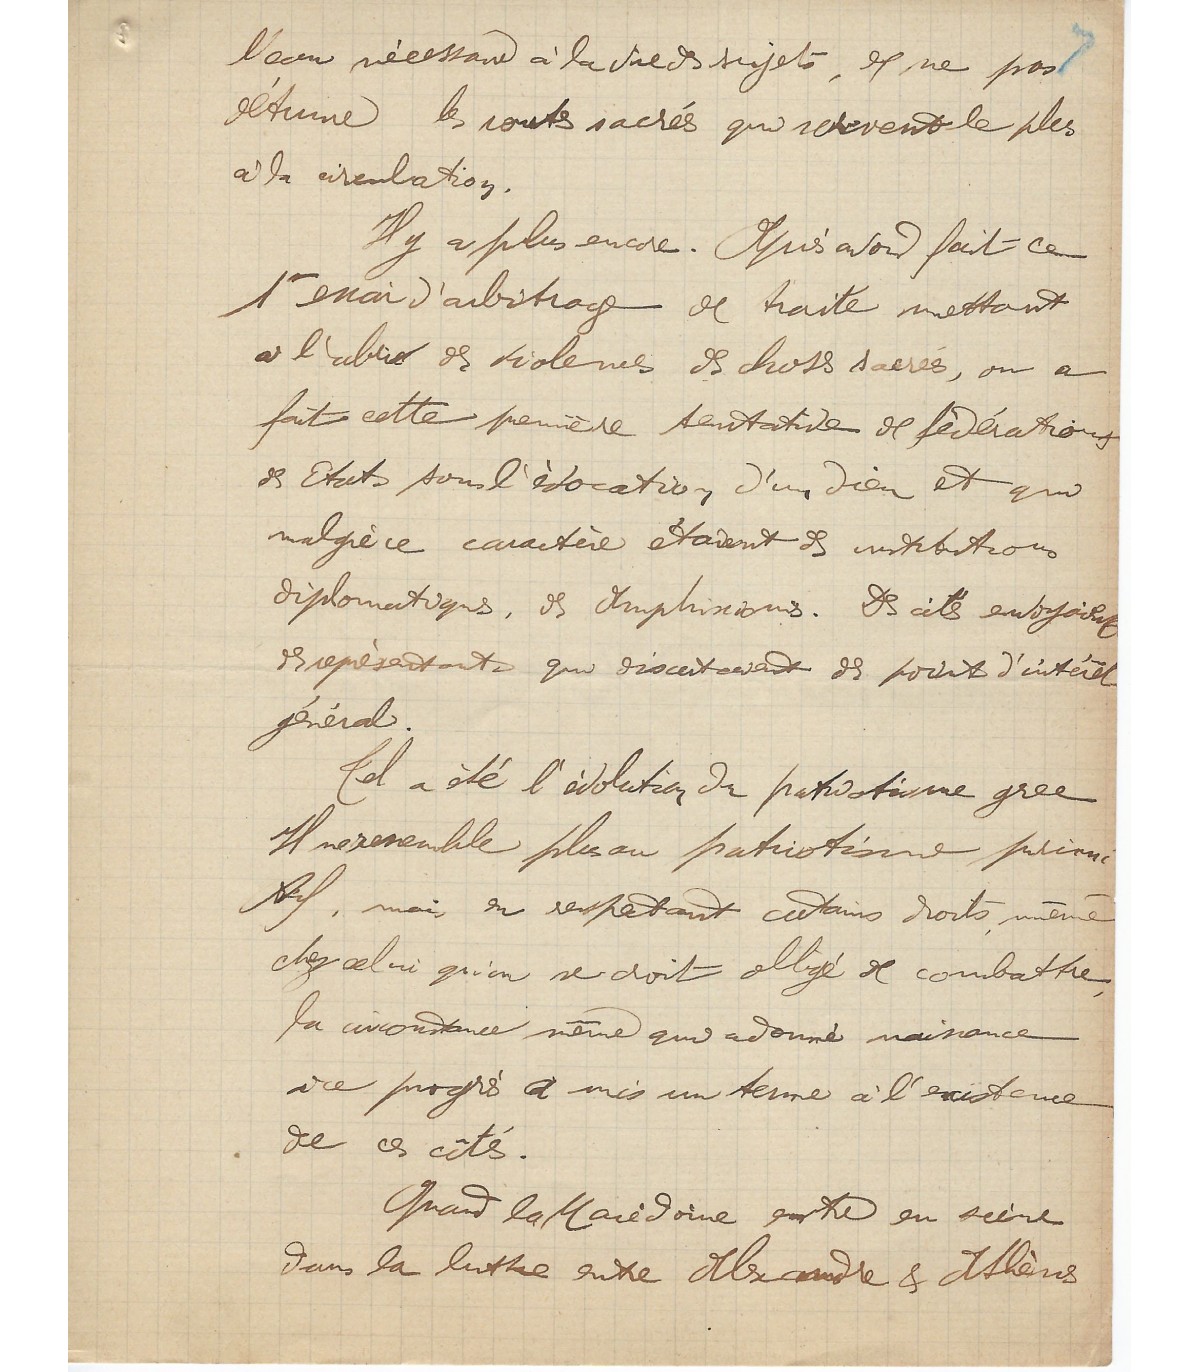 7
l'eau nécessaire à la vie des sujets, et ne pas
détruire les routes sacrés qui servent le plus
à la circulation.
Il y a plus encore. Après avoir fait ce
1er essai d'arbitrage de traité mettant
à l'abri des violences des choses sacrés, on a
fait cette première tentative de fédérations
des Etats sous l'évocation d'un dieu et qui
malgré ce caractère étaient des institutions
diplomatiques, des Amphixionis. Des cités envoyaient
des représentants qui discutaient des points d'intérêt
général.
Tel a été l'évolution du patriotisme grec
Il ne ressemble plus au patriotisme primi
tif, mais en respectant certains droits, même
chez celui qu'on se croit obligé de combattre,
la circonstance même qui a donné naissance
à ce progrès a mis un terme à l'existence
de ces cités.
Quand la Macédoine entre en scène
dans la lutte entre Alexandre & Athènes